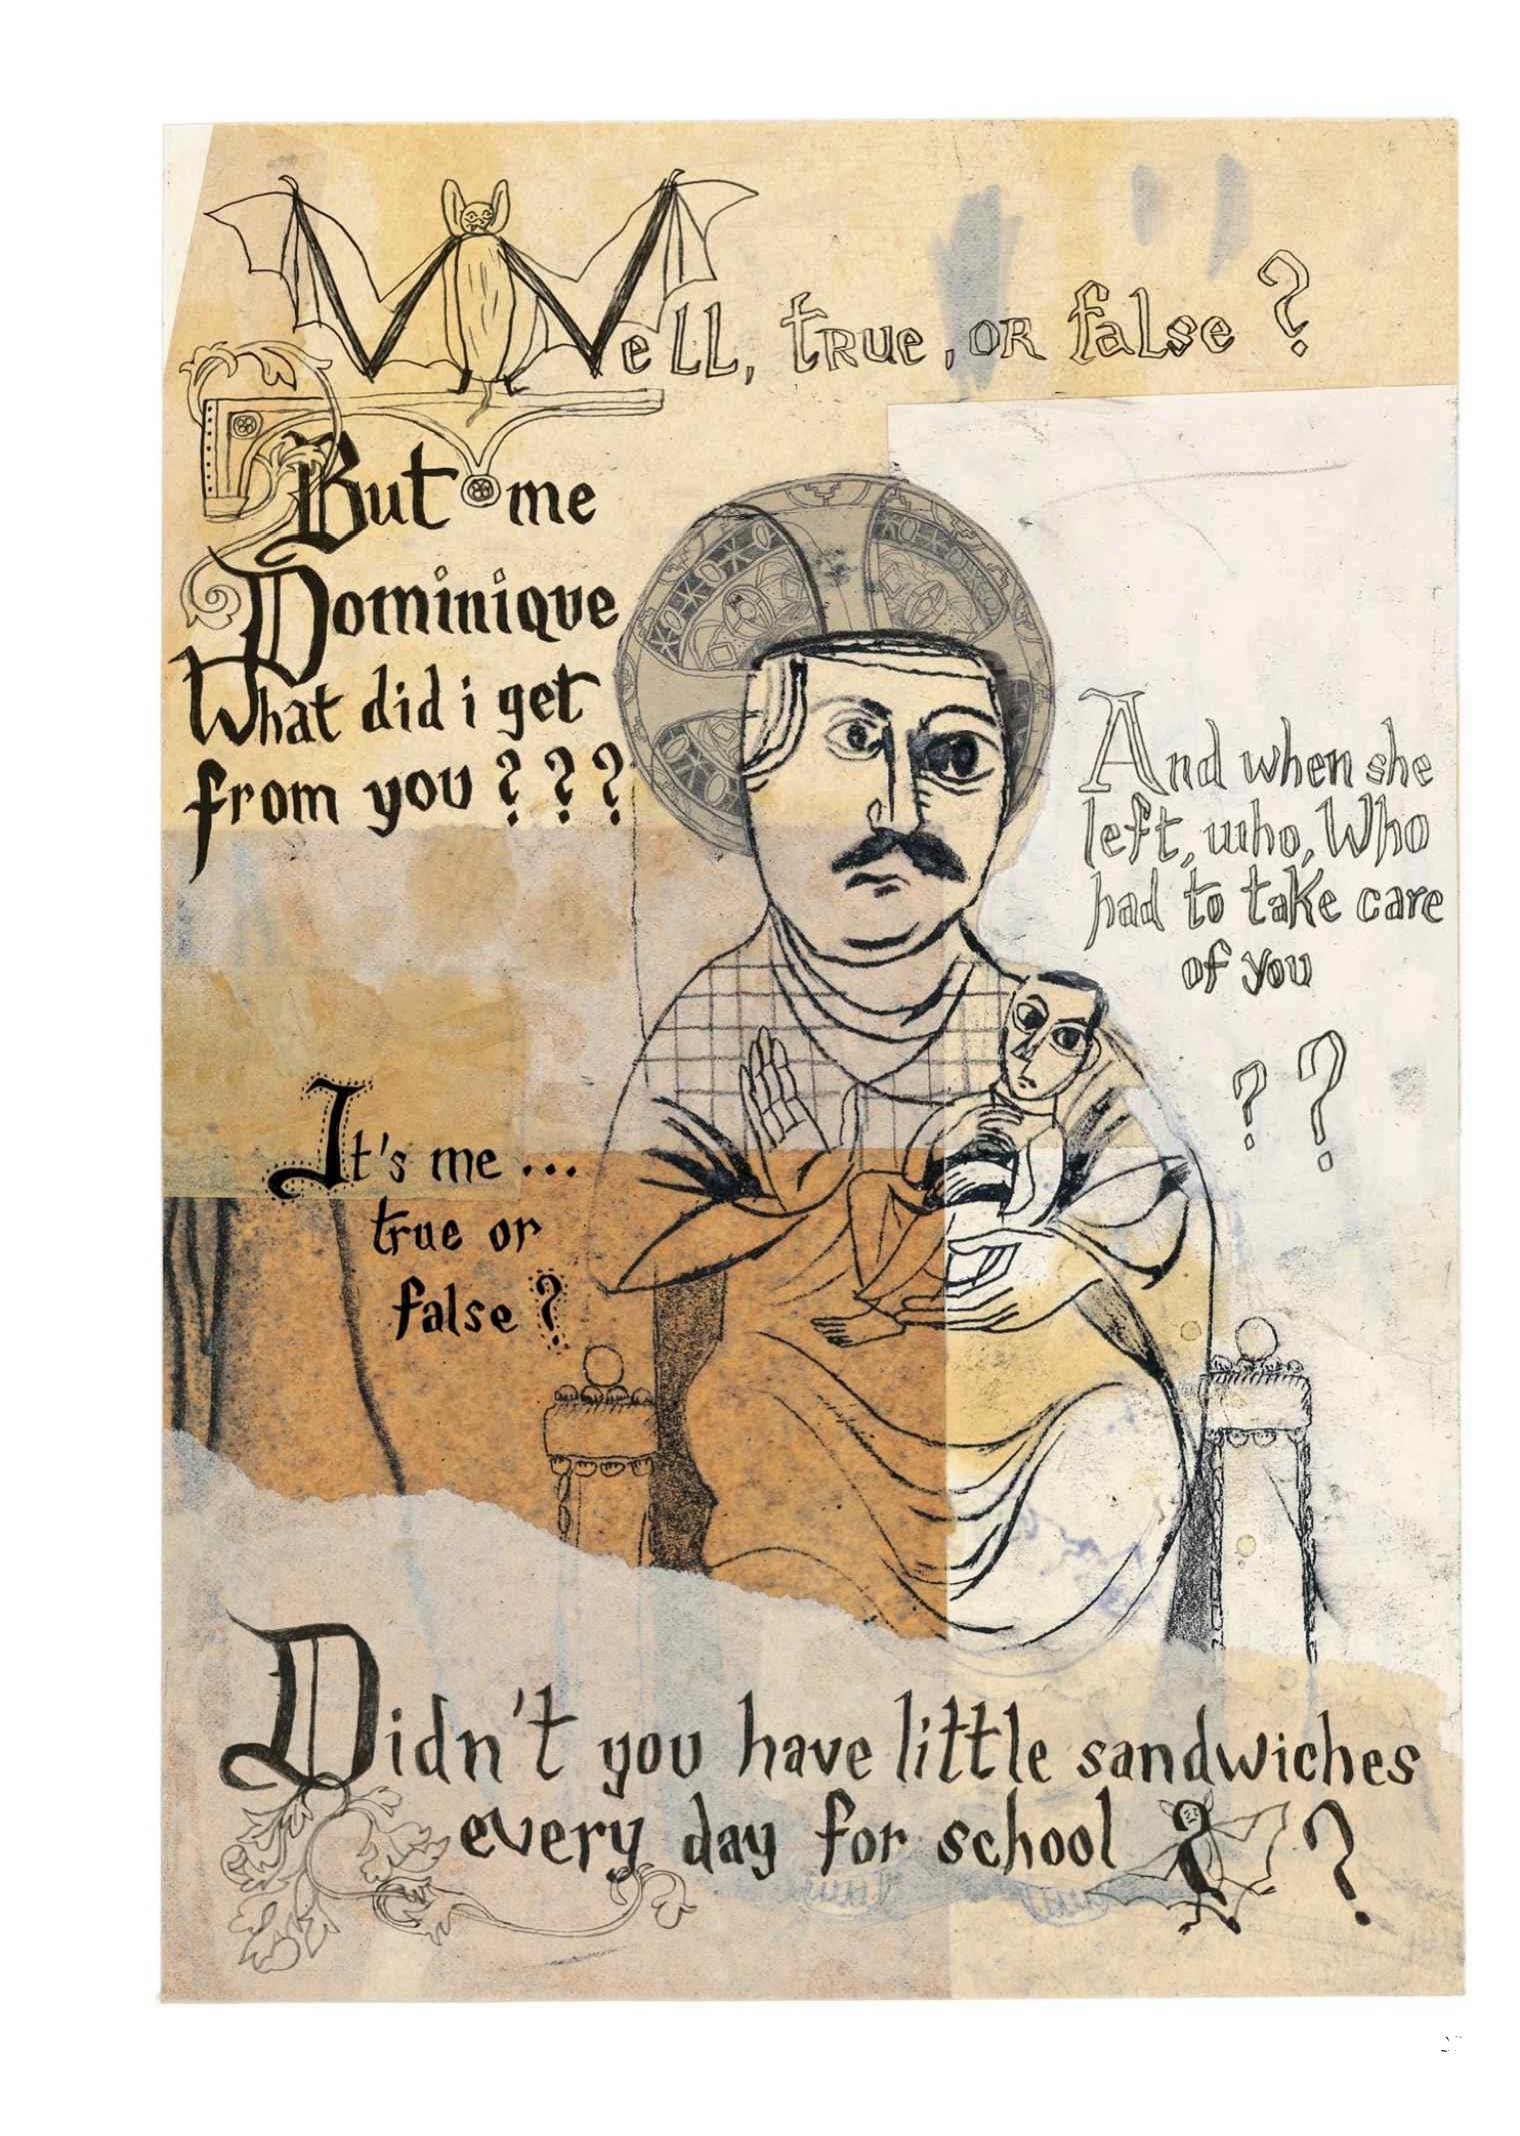 Well, true, or false?
But me
Dominique
What did i get
from you???
And when she
left, who, Who
had to take care
of you
??
It's me...
true or
false?
Didn't you have little sandwiches
every day for school ?